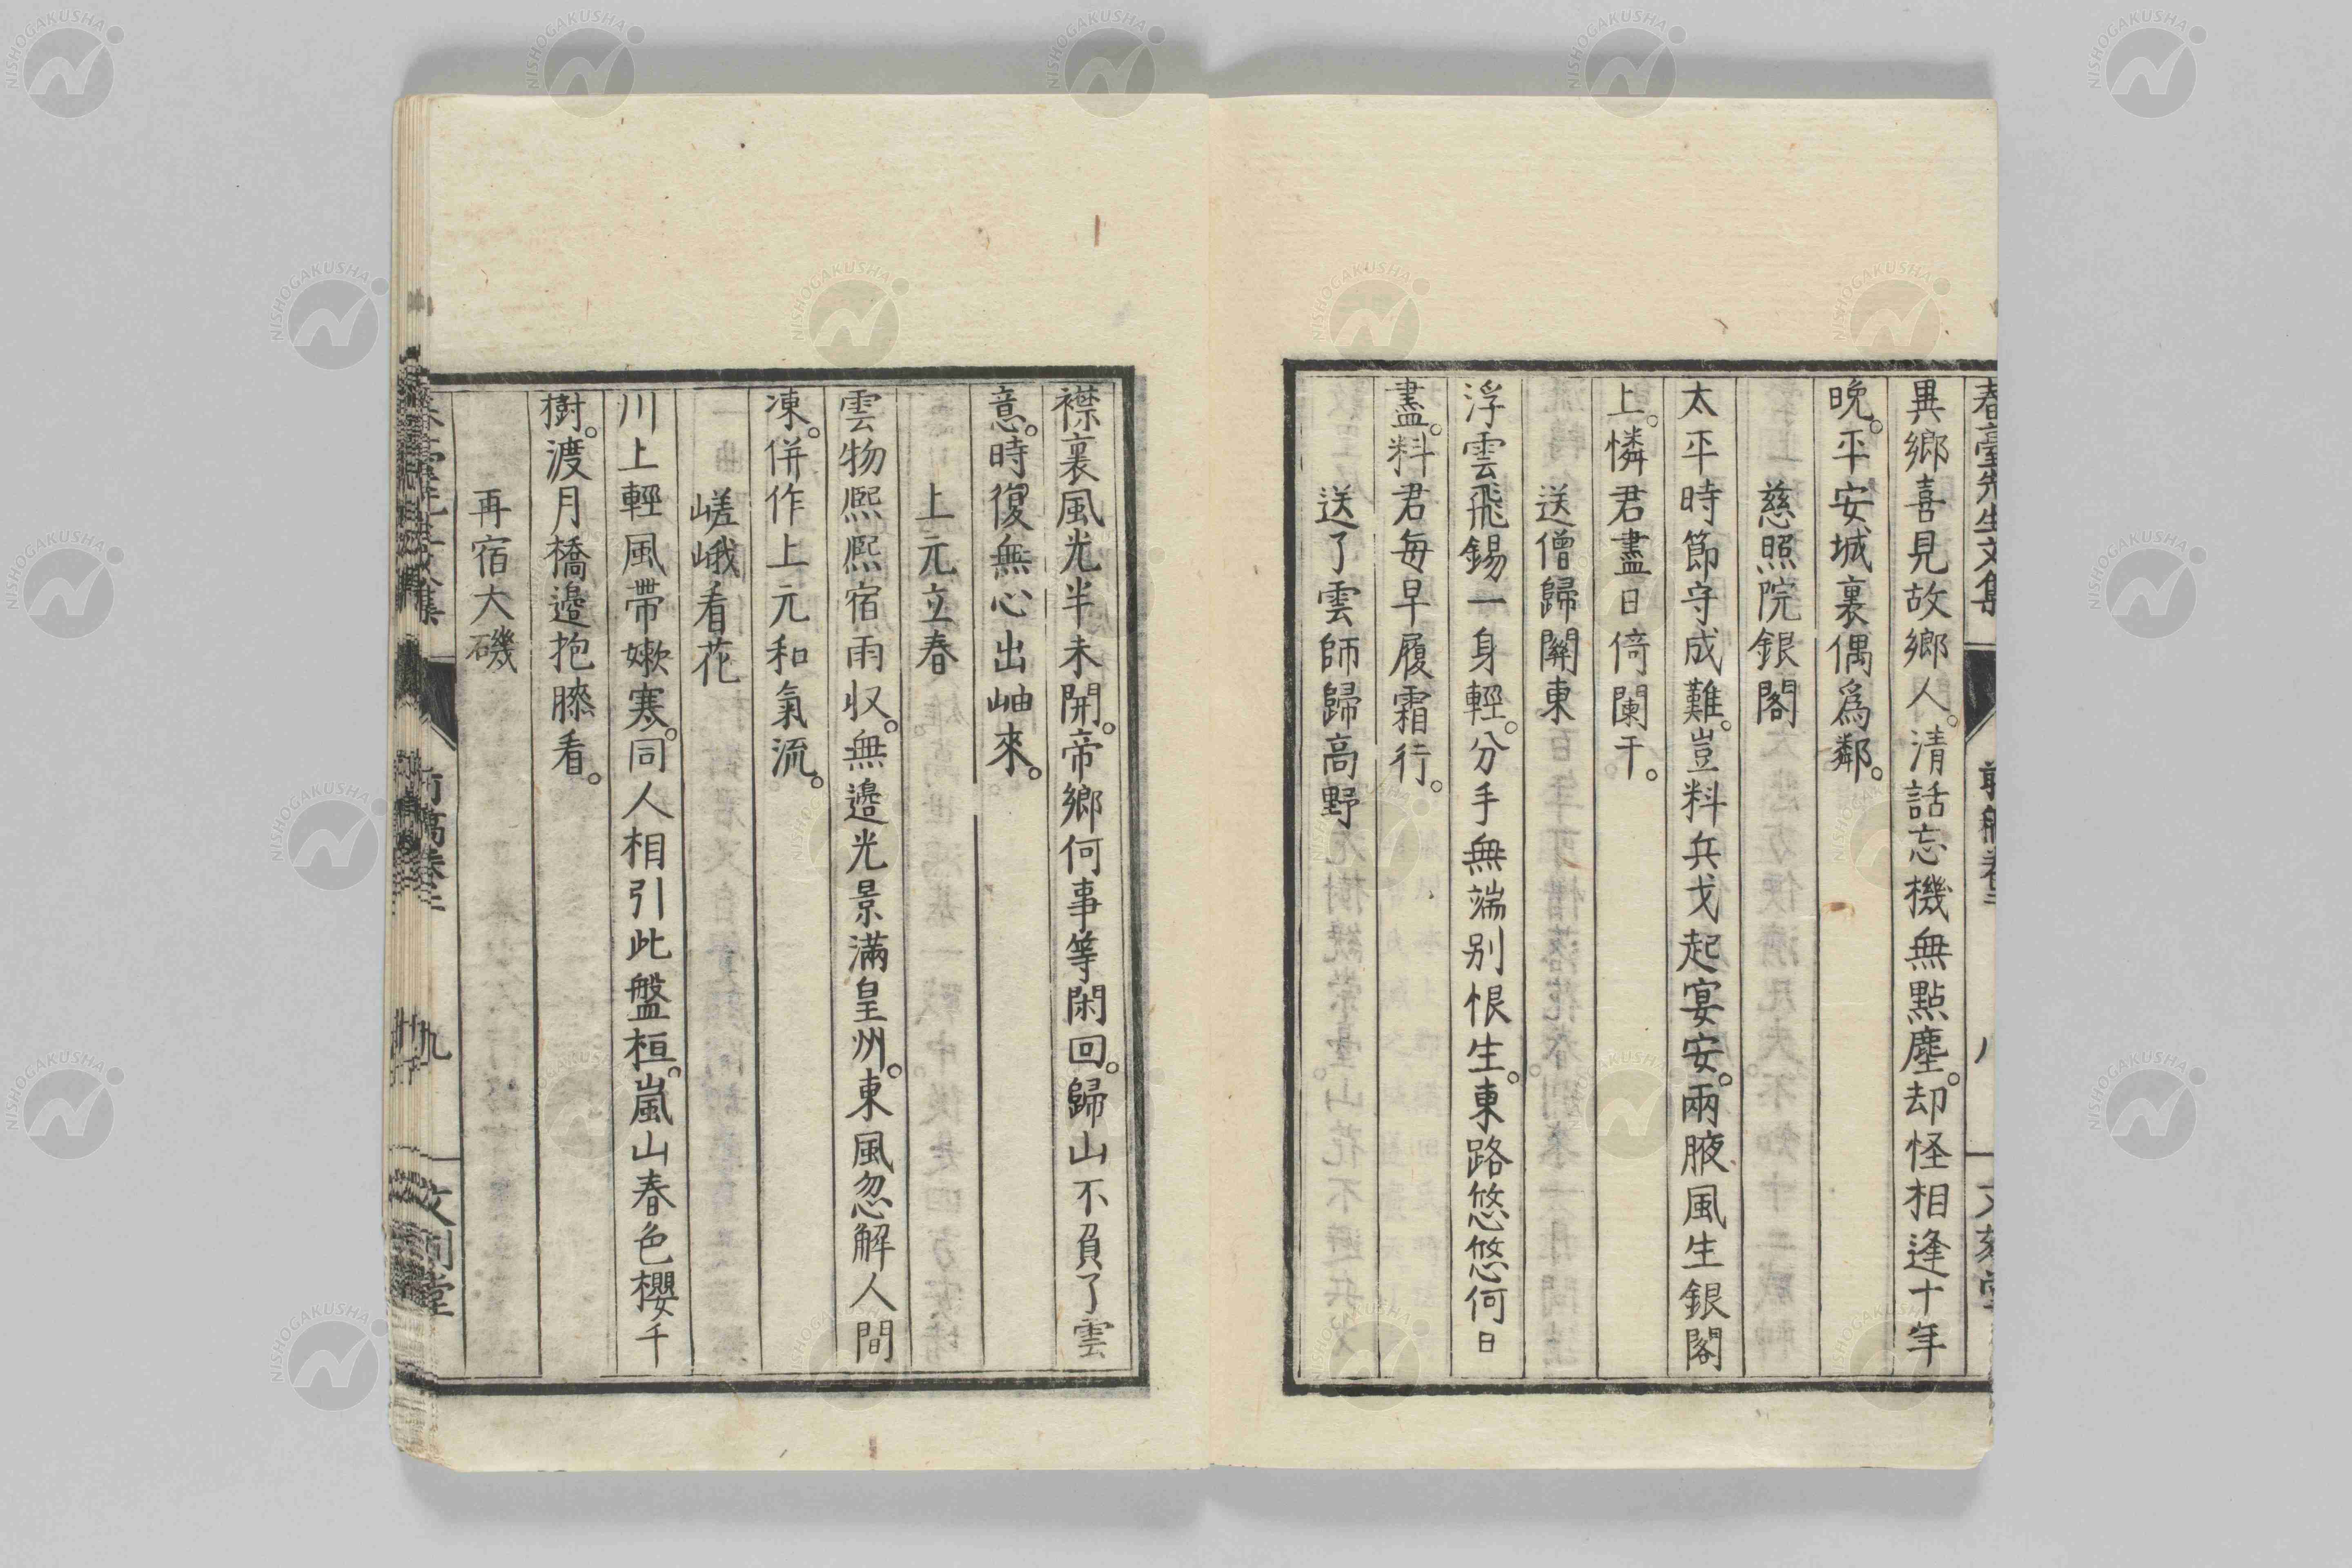 春臺先生文集
異鄉喜見故鄉人。清話忘機無點塵。却怪相逢十年
晚。平安城裏偶爲鄰。
慈照院銀閣
太平時節守成難。豈料兵戈起宴安。兩腋風生銀閣
上。憐君盡日倚闌干。
送僧歸關東
浮雲飛錫一身輕。分手無端別恨生。東路悠悠何日
盡。料君每早履霜行。
送了雲師歸高野
襟裏風光半未開。帝鄉何事等閑回。歸山不負了雲
意。時復無心出岫來。
上元立春
雲物熈熈宿雨収。無邊光景滿皇州。東風忽解人間
凍。併作上元和氣流。
嵯峨看花
川上輕風帶嫩寒。同人相引此盤桓。嵐山春色櫻千
樹。渡月橋邊抱膝看。
再宿大磯
九
NISHOGAKUSHA